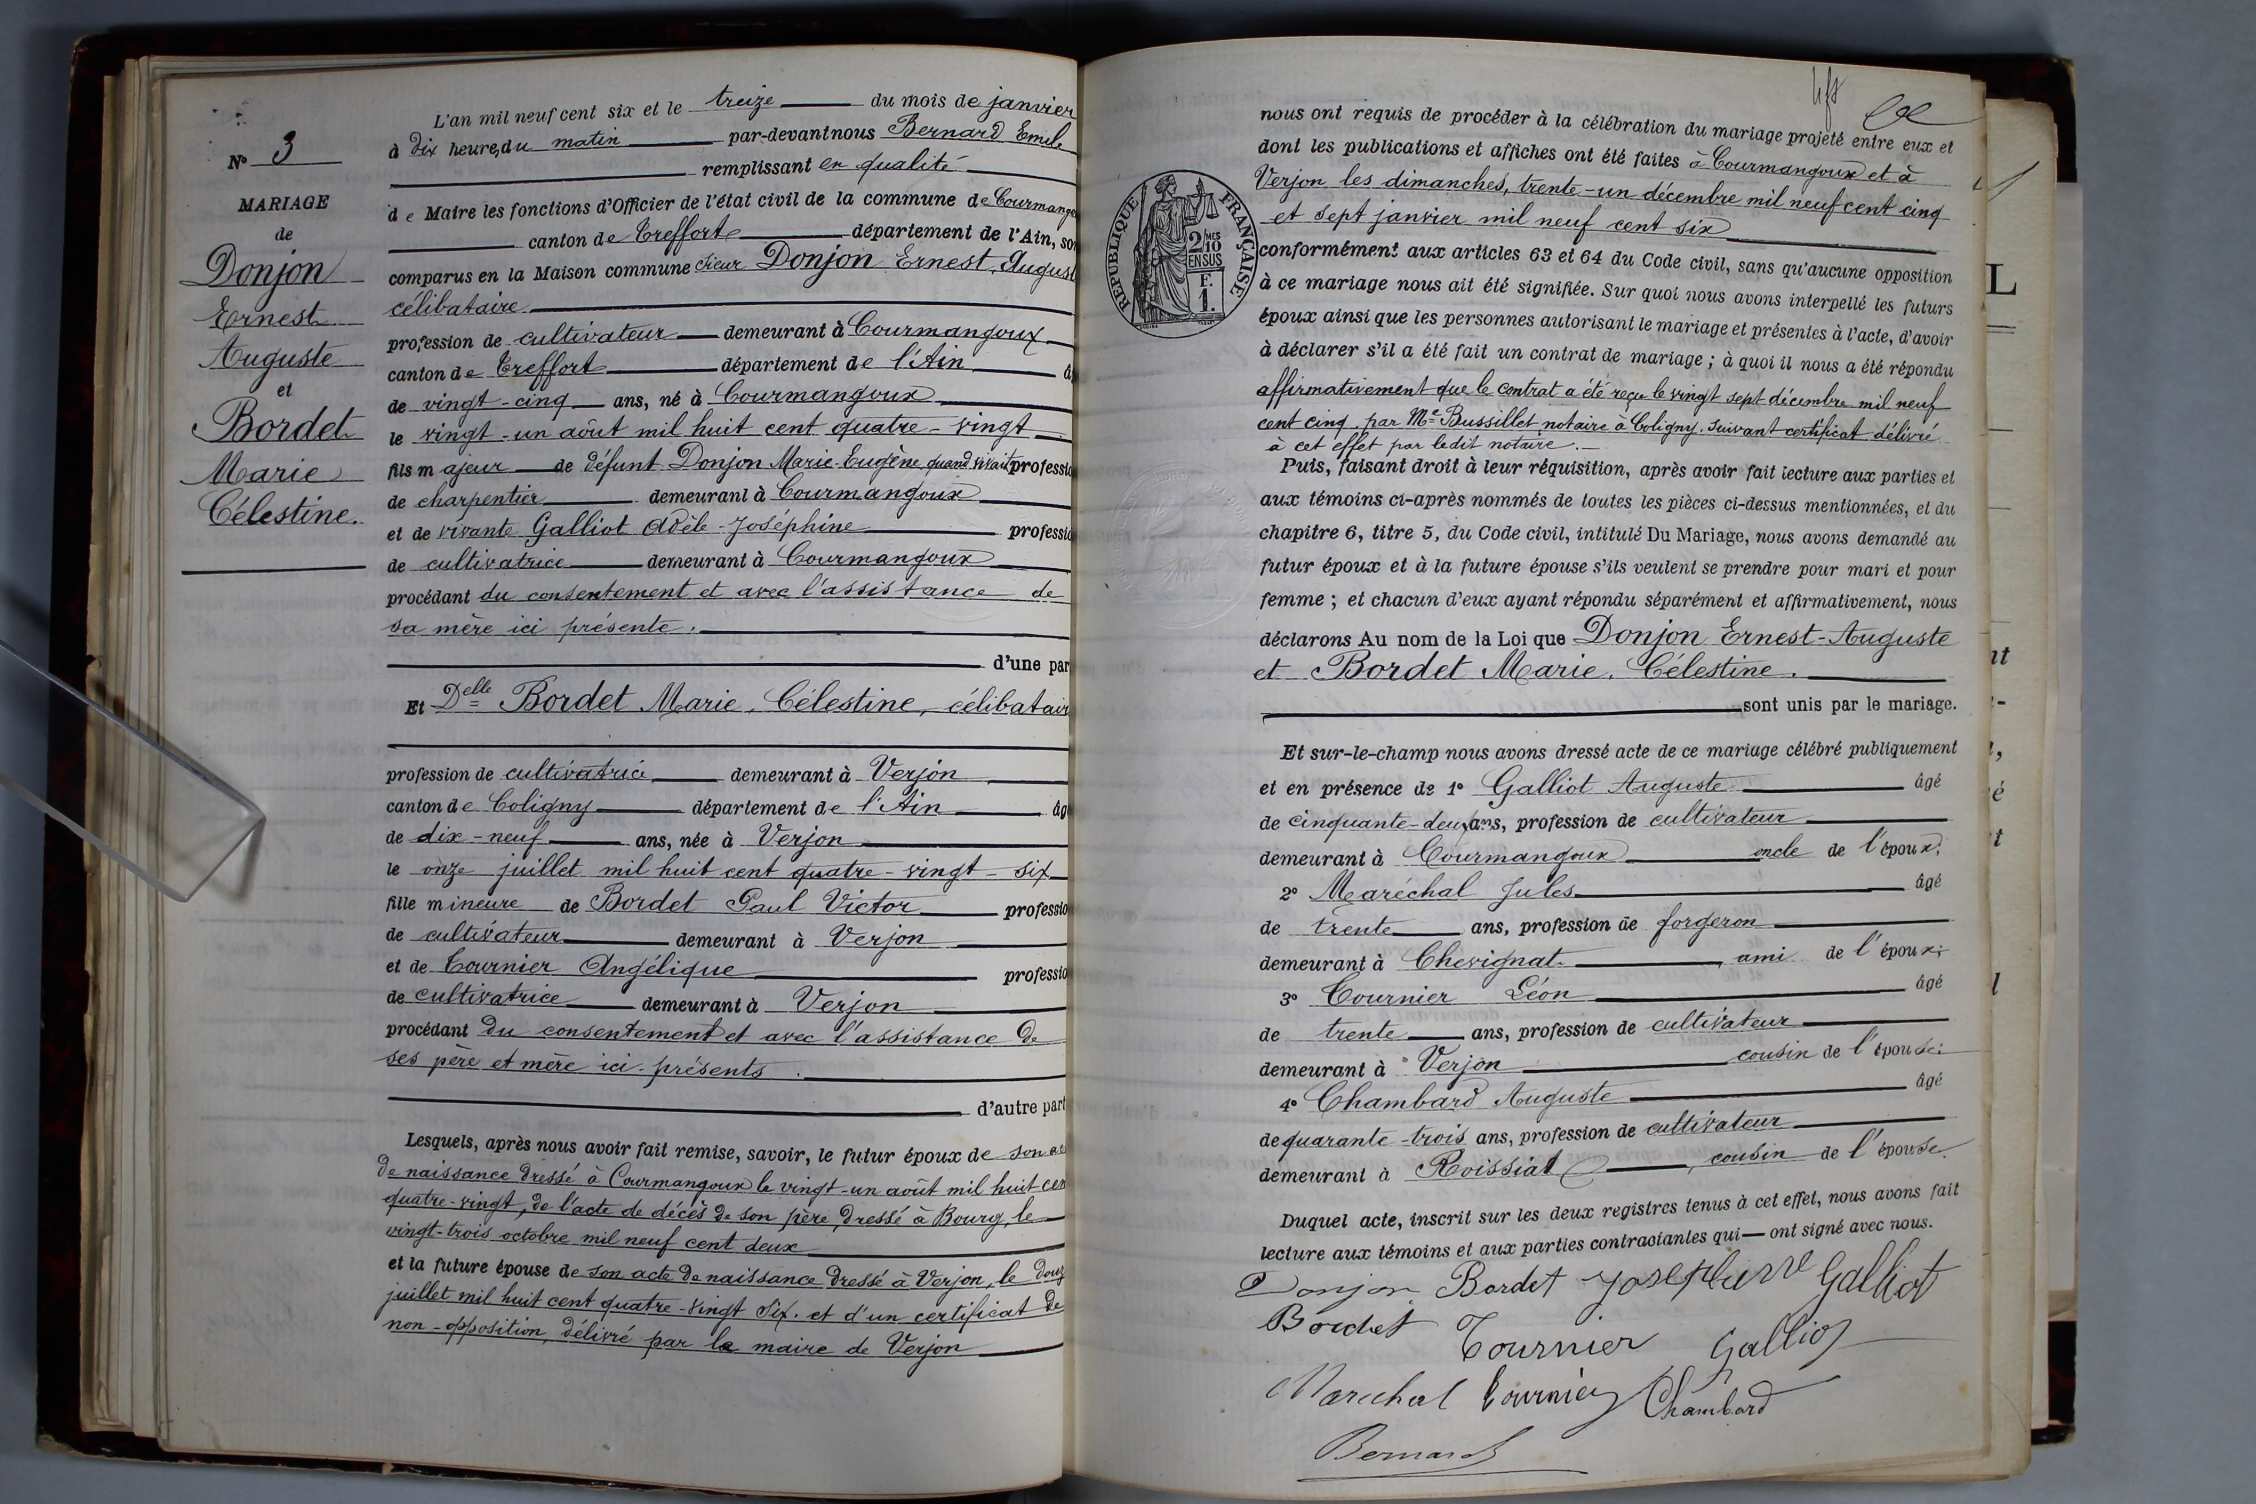 N° 3
MARIAGE
de
Donjon
Ernest
Auguste
et
Bordet
Marie
Célestine.
L'an mil neuf cent six et le treize du mois de janvier
à dix heures du matin par-devant nous Bernard Emile
remplissant en qualité
de Maire les fonctions d'Officier de l'état civil de la commune de Courmangou
canton de Treffort département de l'Ain, son
comparus en la Maison commune sieur Donjon Ernest August
célibataire
profession de cultivateur demeurant à Courmangoux
canton de Treffort département de l'Ain â
de vingt-cinq ans, né à Courmangoux
le vingt-un août mil huit cent quatre-vingt
fils majeur de défunt Donjon Marie-Eugène quand vivait professio
de charpentier demeurant à Courmangoux
et de vivante Galliot Adèle-Joséphine professio
de cultivatrice demeurant à Courmangoux
procédant du consentement et avec l'assistance de
sa mère ici présente.
d'une par
Et Delle Bordet Marie, Célestine, célibatair
profession de cultivatrice demeurant à Verjon
canton de Coligny département de l'Ain âg
de dix-neuf ans, née à Verjon
le onze juillet mil huit cent quatre-vingt-six
fille mineure de Bordet Paul Victor professio
de cultivateur demeurant à Verjon
et de Tournier Angélique professio
de cultivatrice demeurant à Verjon
procédant du consentement et avec l'assistance de
ses père et mère ici présents.
d'autre part
Lesquels, après nous avoir fait remise, savoir, le futur époux de son ac
de naissance dressé à Courmangoux le vingt-un août mil huit cen
quatre-vingt, de l'acte de décès de son père, dressé à Bourg, le
vingt-trois octobre mil neuf cent deux
et la future épouse de son acte de naissance dressé à Verjon, le douz
juillet mil huit cent quatre-vingt six. et d'un certificat de
non-opposition, délivré par le maire de Verjon
RÉPUBLIQUE FRANÇAISE
2/10 MES
EN SUS
F.
1.
nous ont requis de procéder à la célébration du mariage projeté entre eux et
dont les publications et affiches ont été faites à Courmangoux et à
Verjon les dimanches, trente-un décembre mil neuf cent cinq
et sept janvier mil neuf cent six
conformément aux articles 63 et 64 du Code civil, sans qu'aucune opposition
à ce mariage nous ait été signifiée. Sur quoi nous avons interpellé les futurs
époux ainsi que les personnes autorisant le mariage et présentes à l'acte, d'avoir
à déclarer s'il a été fait un contrat de mariage ; à quoi il nous a été répondu
affirmativement que le contrat a été reçu le vingt sept décembre mil neuf
cent cinq par Me Bussillet notaire à Coligny. suivant certificat délivré
à cet effet par ledit notaire.
Puis, faisant droit à leur réquisition, après avoir fait lecture aux parties et
aux témoins ci-après nommés de toutes les pièces ci-dessus mentionnées, et du
chapitre 6, titre 5, du Code civil, intitulé Du Mariage, nous avons demandé au
futur époux et à la future épouse s'ils veulent se prendre pour mari et pour
femme ; et chacun d'eux ayant répondu séparément et affirmativement, nous
déclarons Au nom de la Loi que Donjon Ernest-Auguste
et Bordet Marie. Célestine.
sont unis par le mariage.
Et sur-le-champ nous avons dressé acte de ce mariage célébré publiquement
et en présence de 1° Galliot Auguste âgé
de cinquante-deux ans, profession de cultivateur
demeurant à Courmangoux oncle de l'époux;
2° Maréchal Jules âgé
de trente ans, profession de forgeron
demeurant à Chevignat ami de l'époux;
3° Tournier Léon âgé
de trente ans, profession de cultivateur
demeurant à Verjon cousin de l'épouse;
4° Chambard Auguste âgé
de quarante-trois ans, profession de cultivateur
demeurant à Roissiat, cousin de l'épouse.
Duquel acte, inscrit sur les deux registres tenus à cet effet, nous avons fait
lecture aux témoins et aux parties contractantes qui ont signé avec nous.
Donjon Bordet Josephine Galliot
Bordet Tournier Galliot
Marechal Tournier Chambard
Bernard